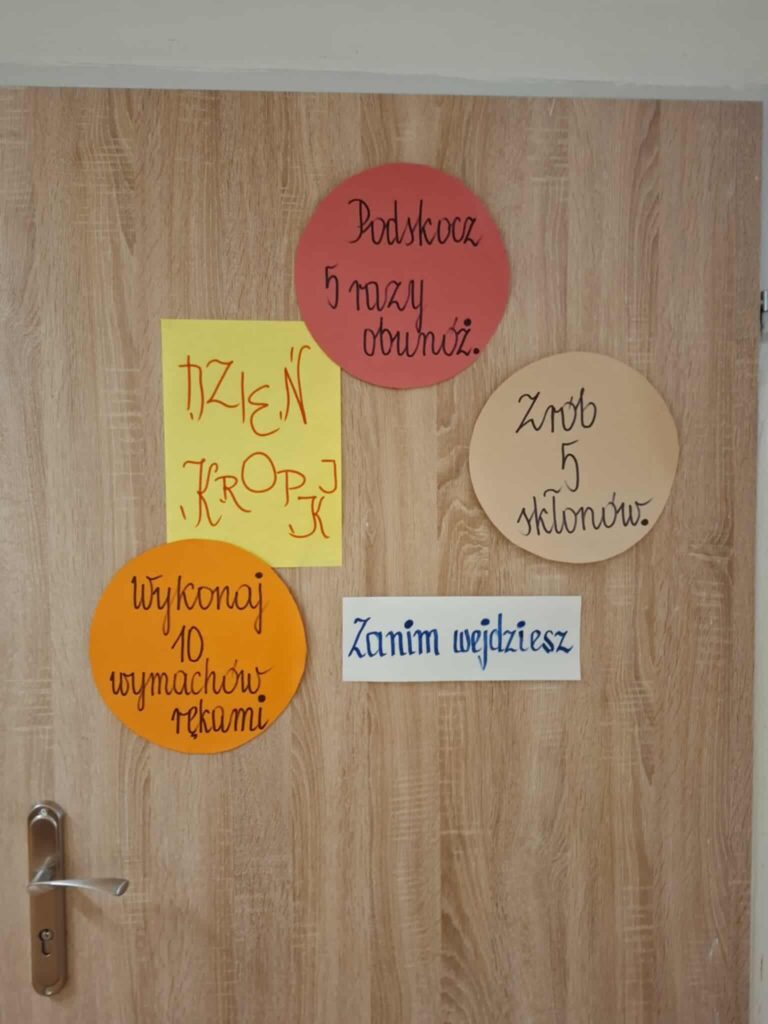 Podskocz
5 razy
obunóż.
DZIEŃ
KROPKI
Zrób
5
skłonów.
Wykonaj
10
wymachów
rękami
Zanim wejdziesz